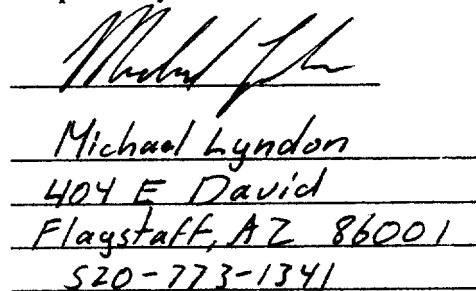 Michael Lyndon
404 E David
Flagstaff, AZ 86001
520-773-1341